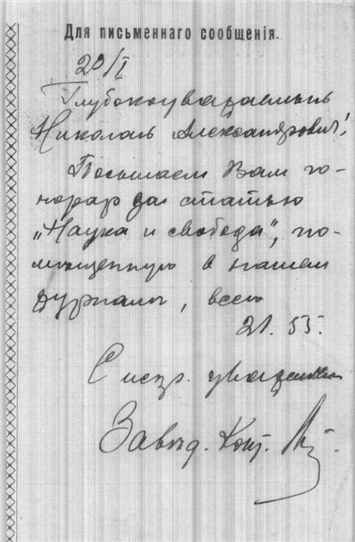 Для письменнаго сообщенія.
20/I
Глубокоуважаемый
Николай Александрович!
Посылаем Вам го-
норар за статью
„Наука и свобода", по-
мещенную в нашем
журнале, всего
21. 55.
С искр. уважением
Завед. Конт.